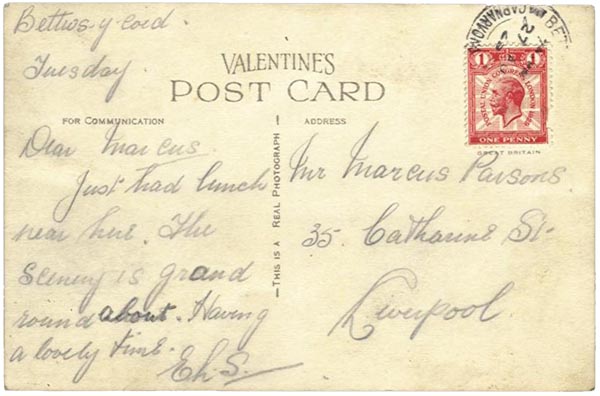 Bettws-y-coed
Tuesday.
VALENTINES
POST CARD
FOR COMMUNICATION
ADDRESS
Dear Marcus
Just had lunch
near here. The
scenery is grand
round about. Having
a lovely time.
THIS IS A REAL PHOTOGRAPH
Mr Marcus Parsons
35. Catharine St.
Liverpool.
CARNARVON
BET
1 1
POSTAL UNION CONGRESS LONDON 1929
ONE PENNY
GREAT BRITAIN